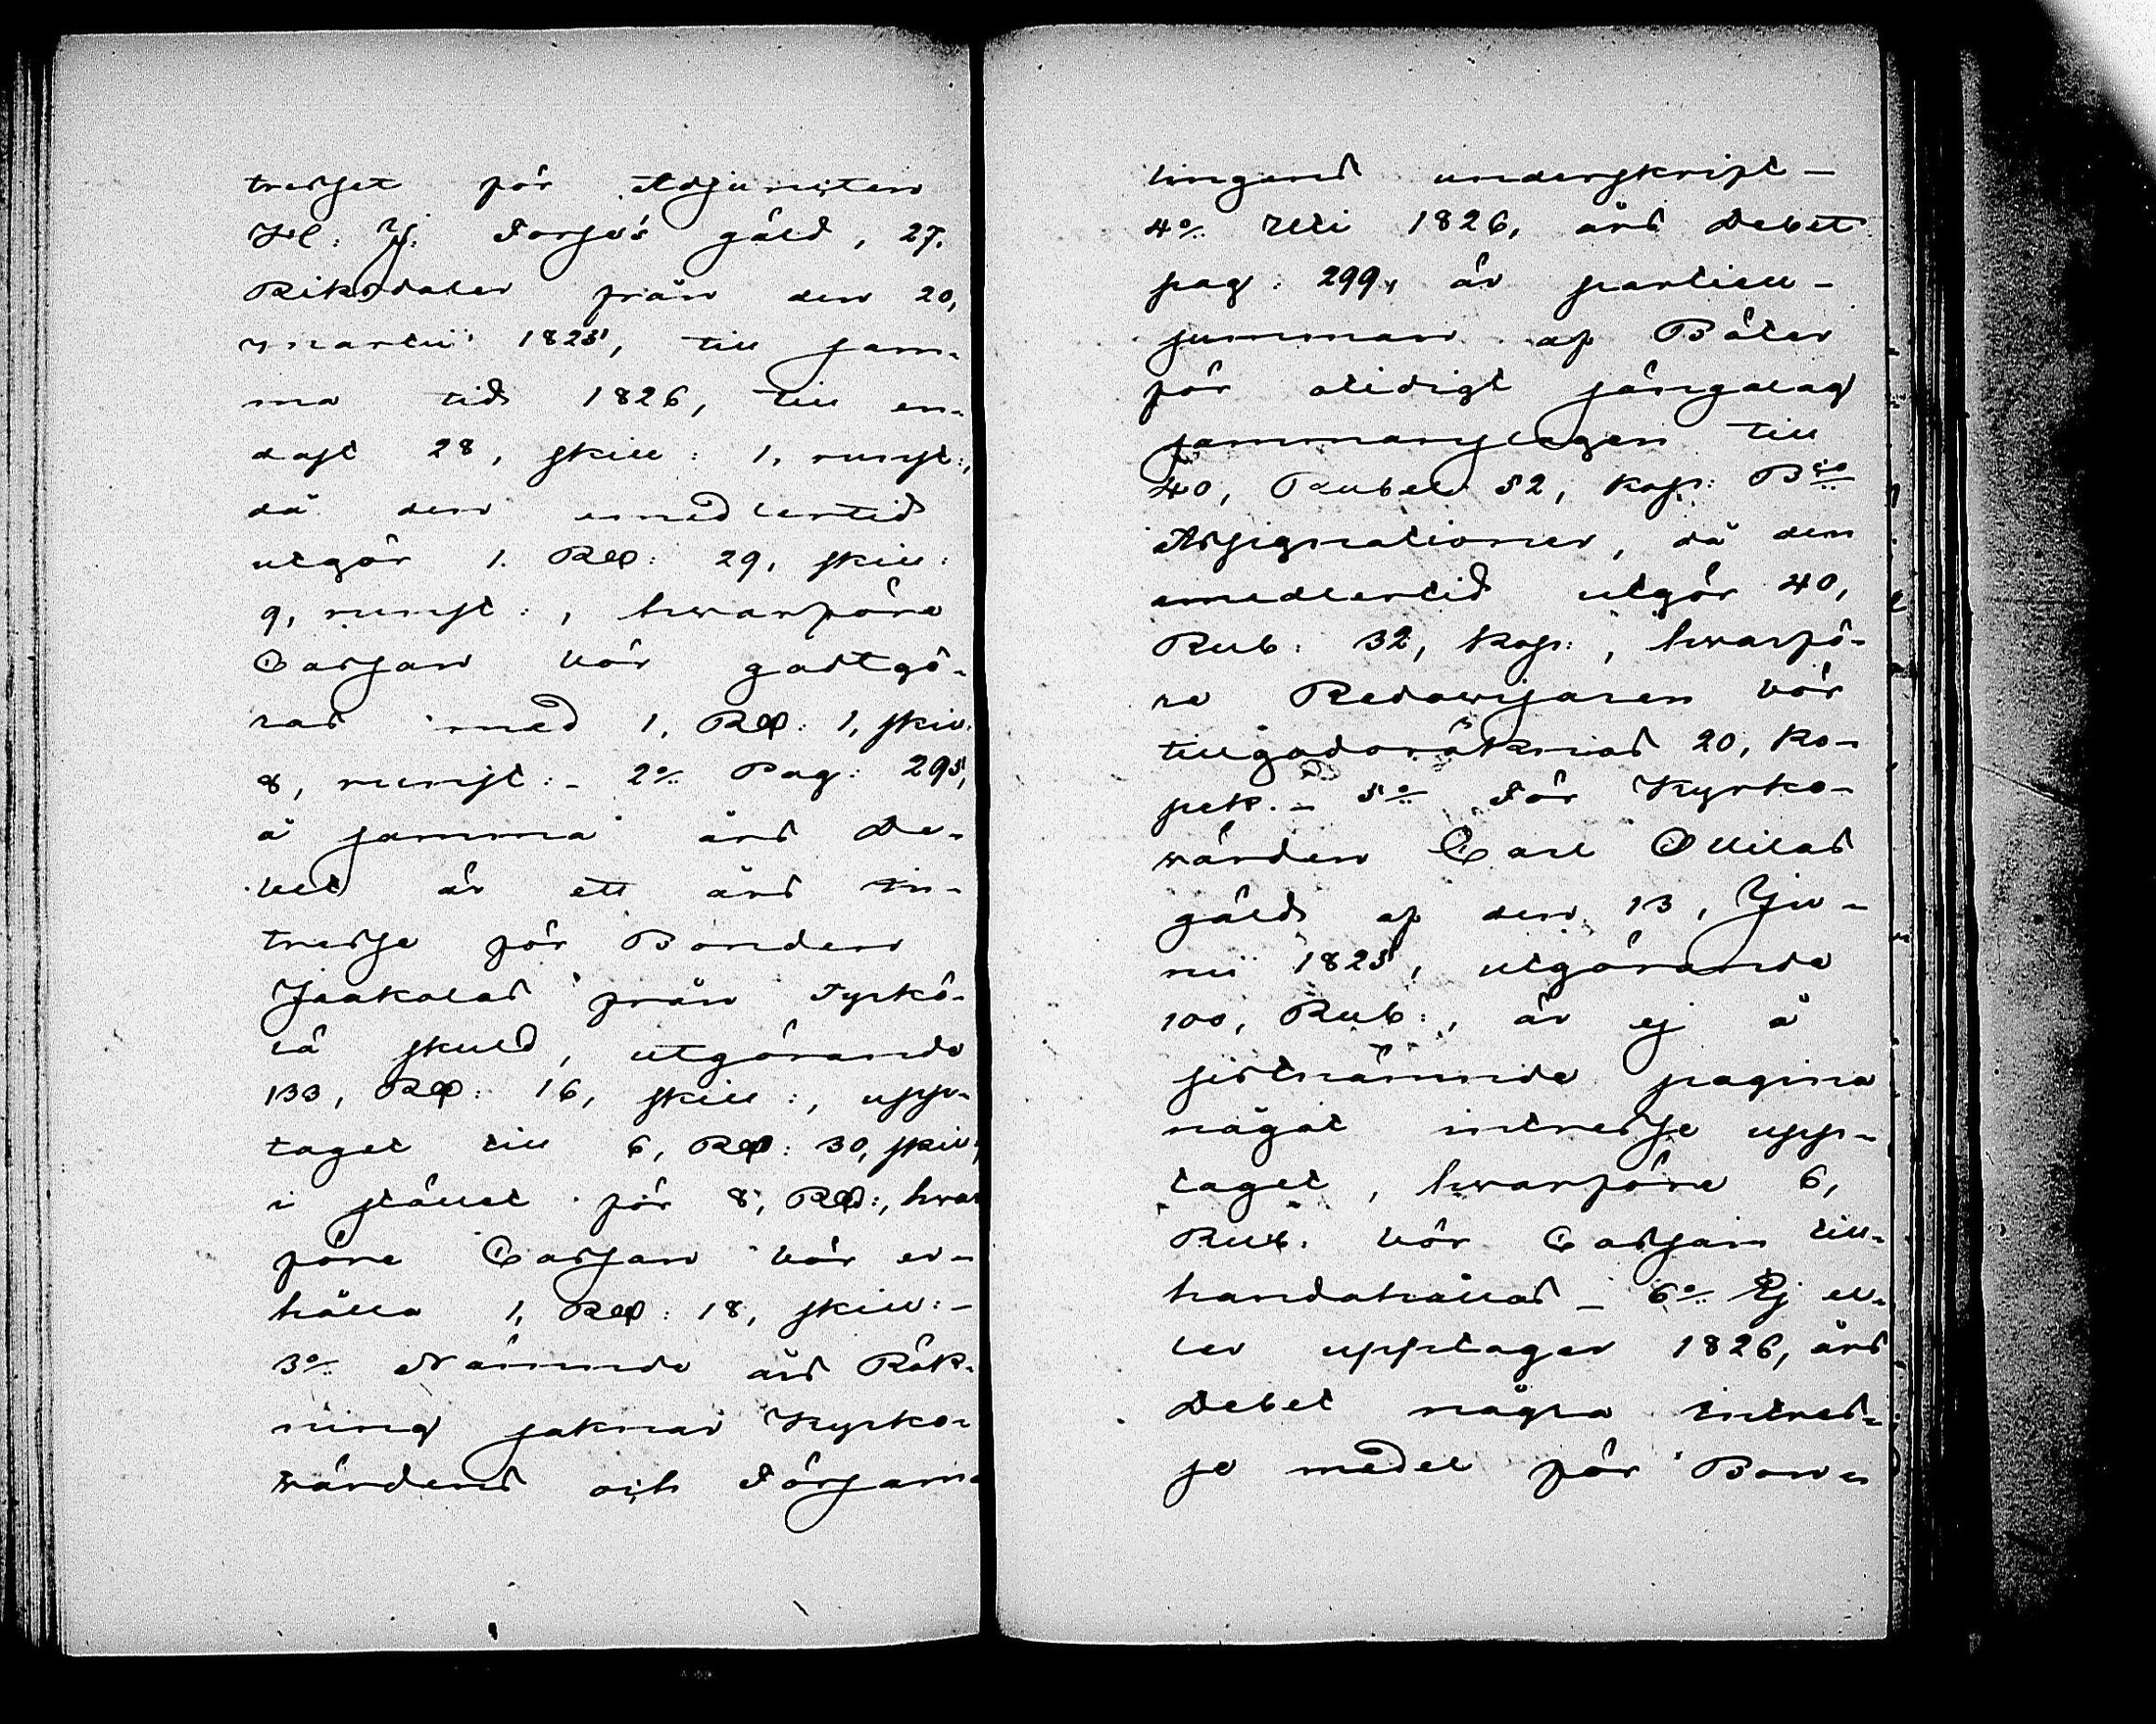 tresset för Adjuncten
H: J: Forsjus gäld, 27.
Riksdaler från den 20,
martii 1825, till sam-
ma tid 1826, till en-
dast 28, skill: 1, runst:,
då den emedlertid
utgör 1. Rd: 29, skill:
9, runst:, hvarföre
Cassan bör godtgö-
ras med 1, Rd: 1, skill:
8, runst:- 2o/. Pag: 295,
å samma års De-
bet är ett års In-
tresse för Bonden
Jaakolas från Pyrkö-
lä skuld, utgörande
133, Rd: 16, skill:, upp-
taget till 6, Rd: 30, skill:
i stället för 8, Rd:, hvar
före Cassan bör er-
hålla 1, Rd: 18, skill:-
3o/. Nämnde års Räk-
ning saknar Kyrko-
värdens och Försam-
lingens underskrift-
4o/. Uti 1826, års Debet
pag: 299, är particu-
summan af Böter
för otidigt sängalag
sammanslagen till
40, Rubel 52, kop: Bco
Assignationer, då den
emedlertid utgör 40,
Rub: 32, kop:, hvarfö-
re Redovisaren bör
tillgodoräknas 20, ko-
pek.- 5o/. För Kyrko-
värden Carl Ollilas
gäld af den 13, Ju-
nii 1825, utgörande
100, Rub:, är ej å
sistnämnde pagina
något intresse upp-
taget, hvarföre 6,
Rub. bör Cassan till-
handahållas- 6o/. Ej el-
ler upptager 1826, års
Debet några intres-
se medel för Bon-